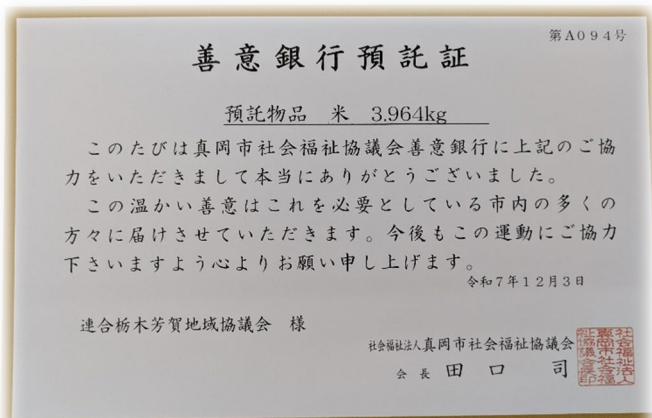 第A094号
善意銀行預託証
預託物品 米 3.964kg
このたびは真岡市社会福祉協議会善意銀行に上記のご協
力をいただきまして本当にありがとうございました。
この温かい善意はこれを必要としている市内の多くの
方々に届けさせていただきます。今後もこの運動にご協力
下さいますよう心よりお願い申し上げます。
令和7年12月3日
連合栃木芳賀地域協議会 様
社会福祉法人真岡市社会福祉協議会
会長 田口 司
社会福祉法人
真岡市社会福
祉協議会長印